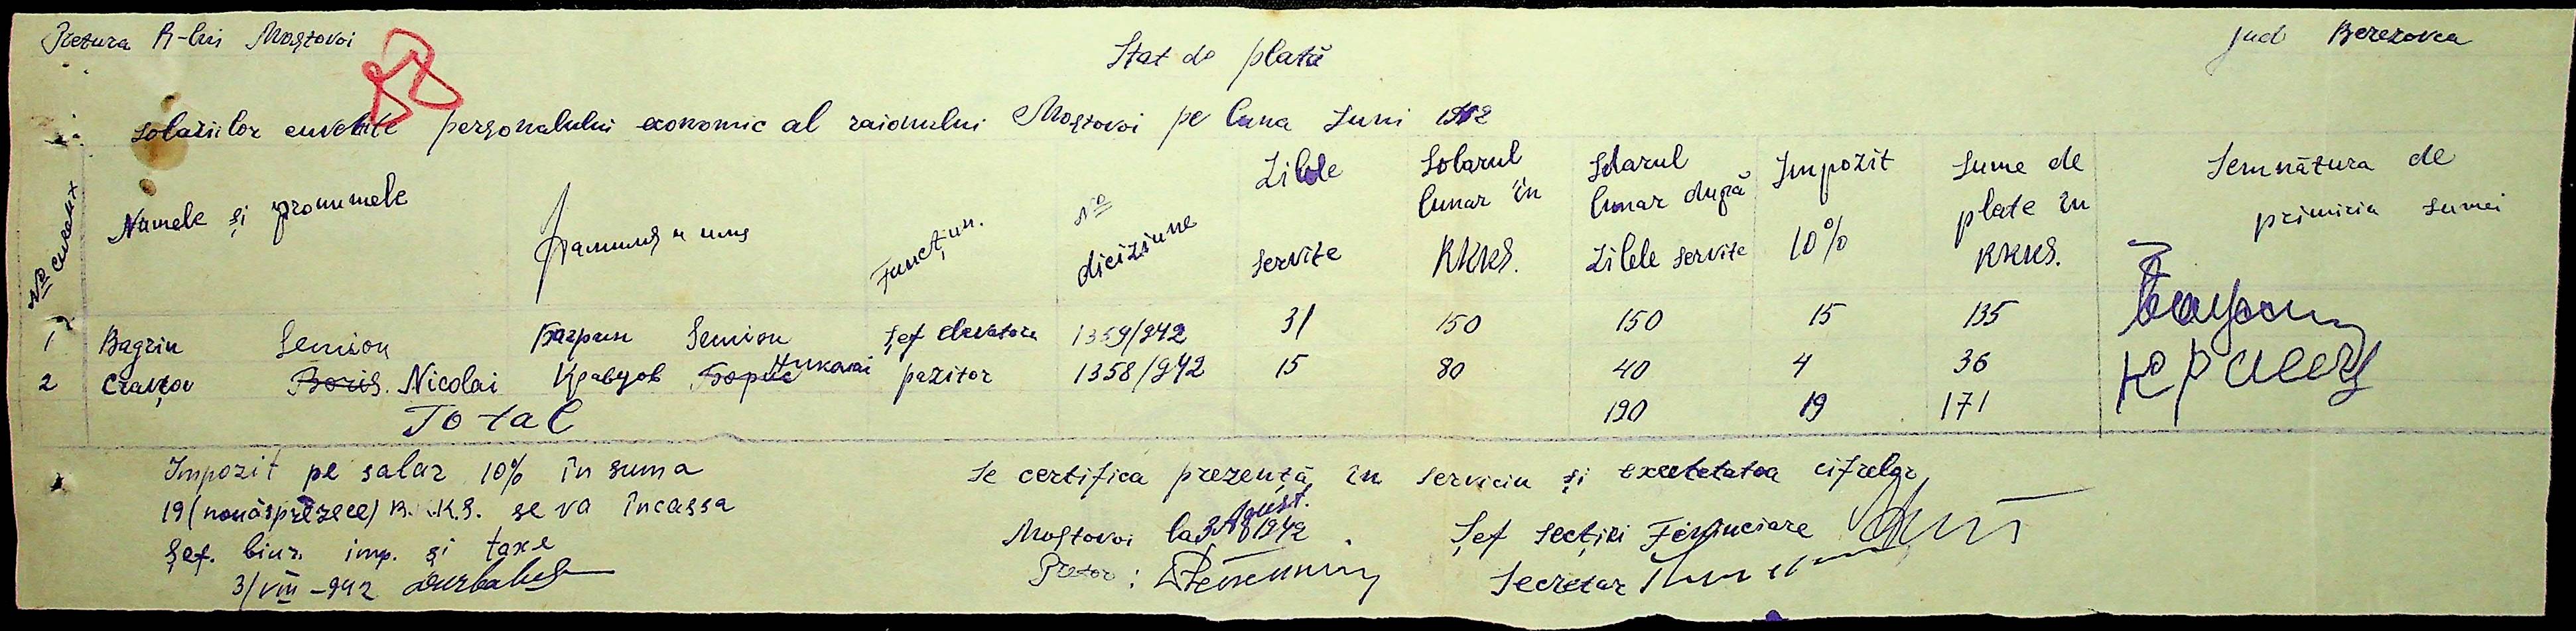 Pretura R-lui Mostovoi
jud Berezovca
88
Stat de plată
solariilor cuvenite personalului economic al raionului Mostovoi pe luna Iuni 1942
№ curent
Numele și pronumele
Фамилия и имя
Funcțiun.
№ diciziune
Zilele servite
Solarul lunar în RKKS.
Solarul lunar după zilele servite
Impozit 10%
Sume de plate în RKKS.
Semnătura de primiria sumei
1 Bagrin Semion Багрин Semion șef elevatora 1359/942 31 150 150 15 135
2 Cravțov Boris. Nicolai Кравцов Борис Николai pazitor 1358/942 15 80 40 4 36
Total 190 19 171
Impozit pe salar 10% în suma
19 (nouăsprezece) R.K.K.S. se va încassa
Șef. biur. imp. și taxe
3/VIII -942
Se certifica prezența în serviciu și cifrelor
Mostovoi la 3 August. 1942
Șef secției Financiare
Pretor:
Secretar